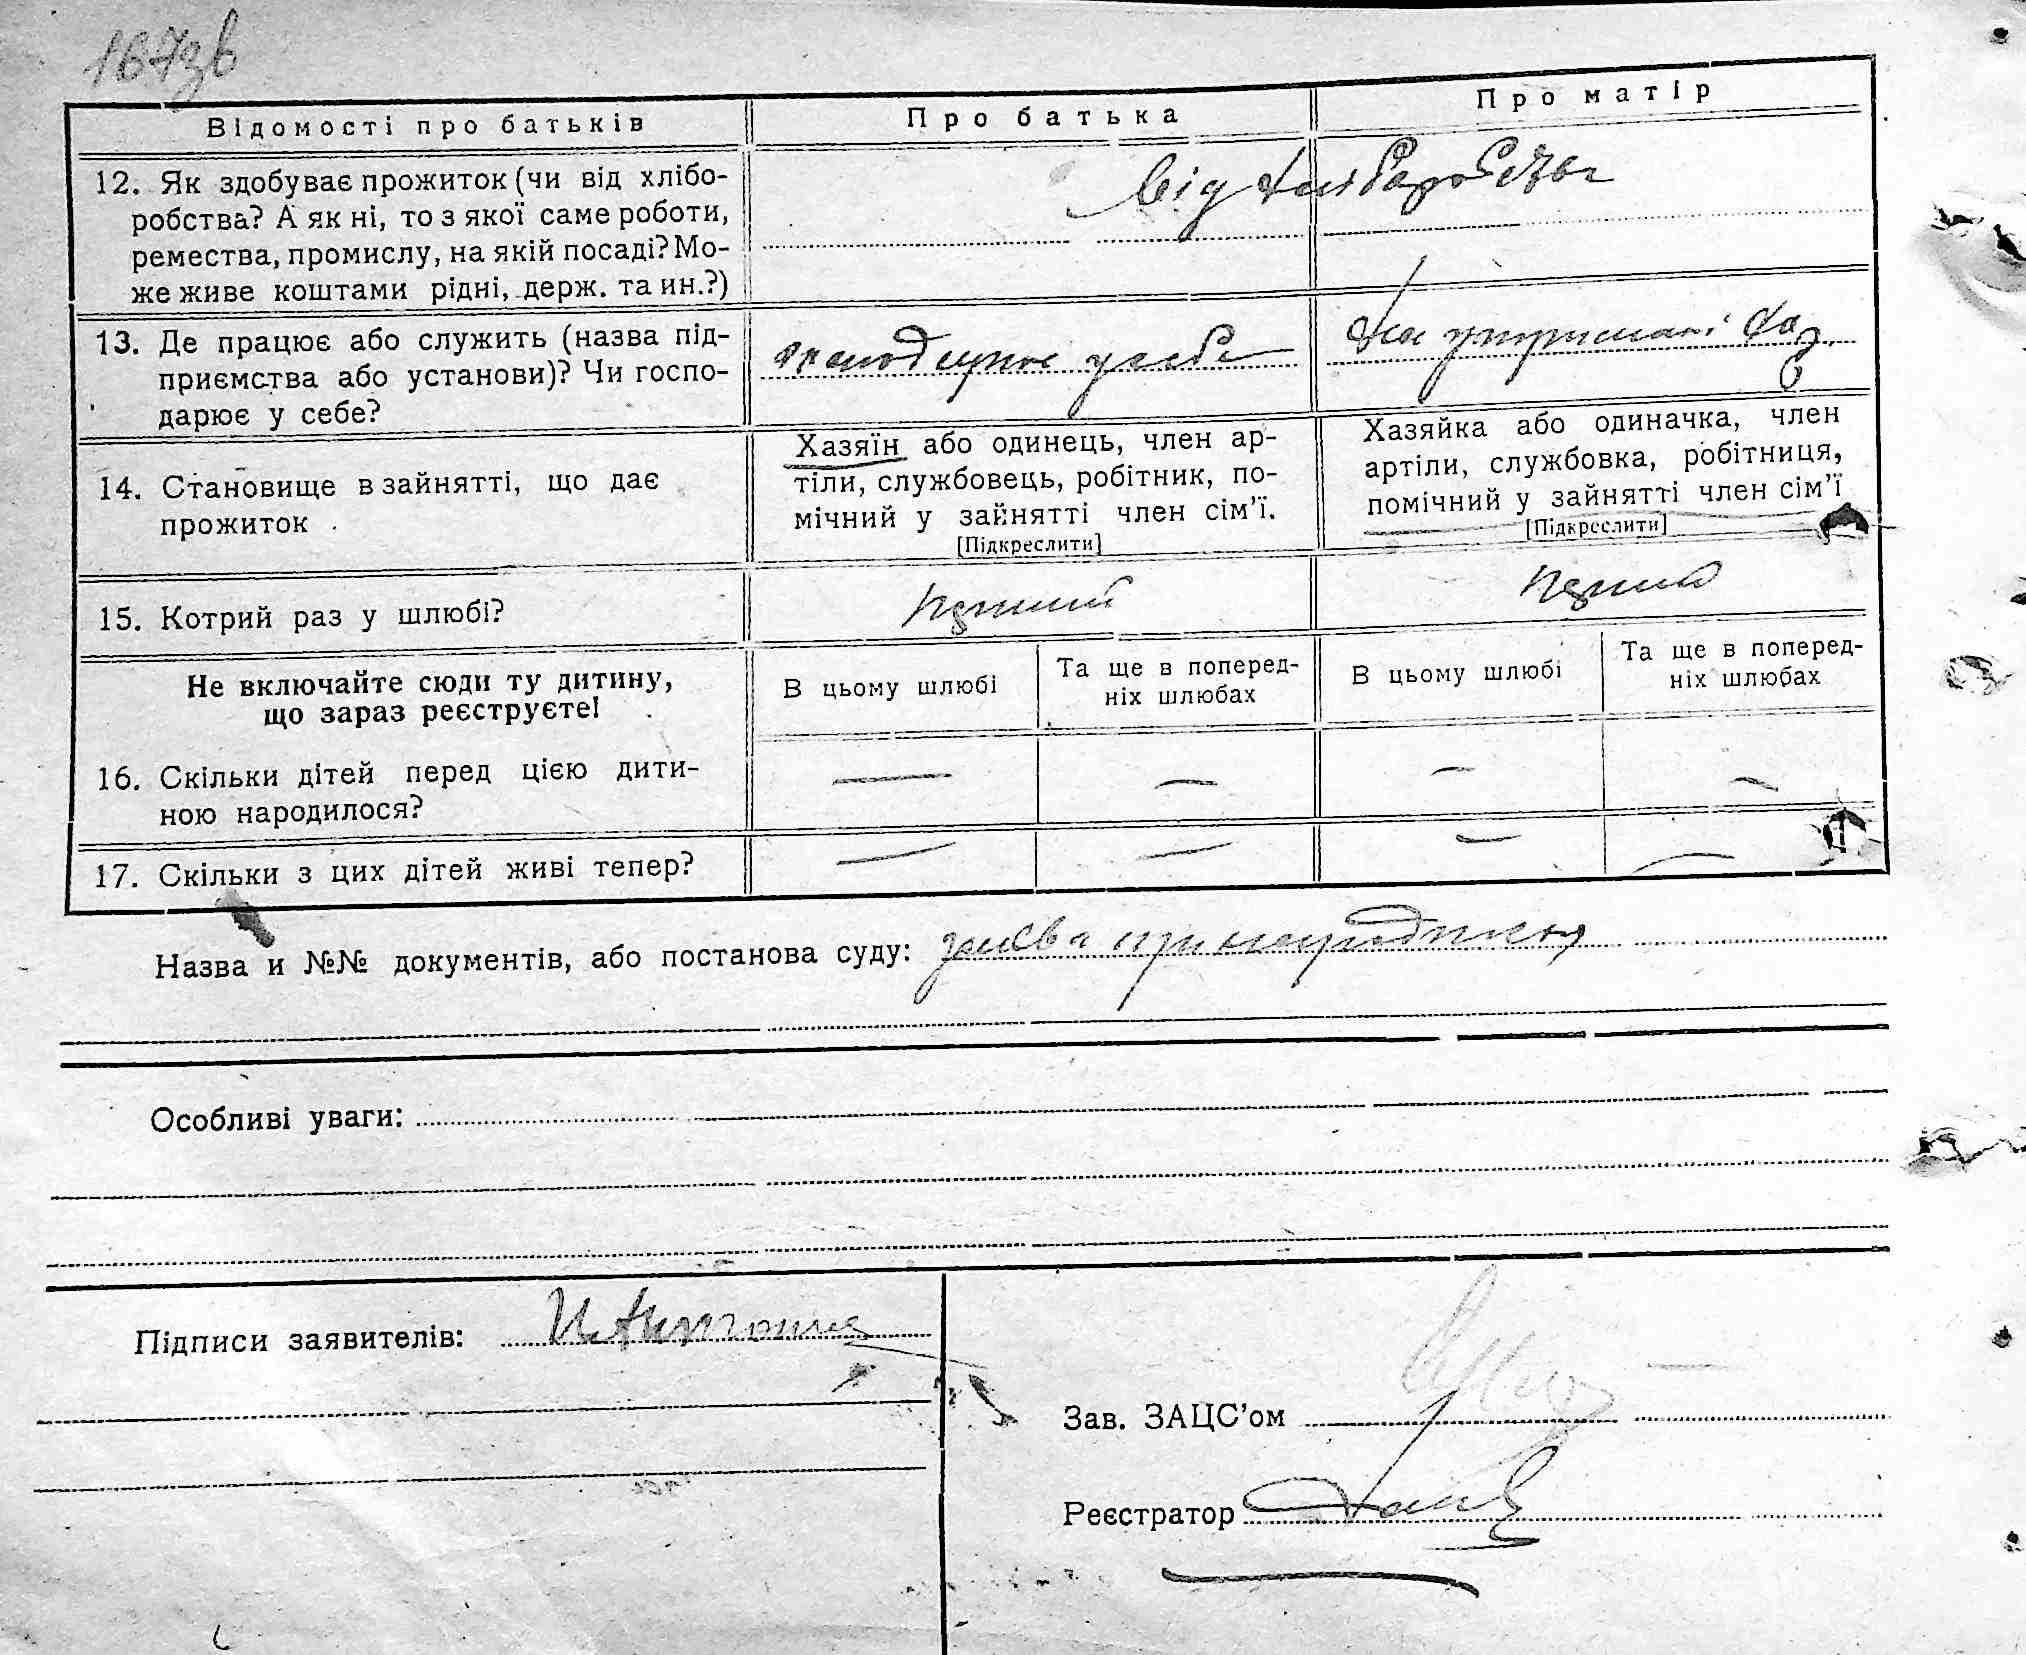 167зв
Відомості про батьків
Про батька
Про матір
12. Як здобуває прожиток (чи від хлібо-
робства? А як ні, то з якої саме роботи,
ремества, промислу, на якій посаді? Мо-
же живе коштами рідні, держ. та ин.?)
від хліборобства
13. Де працює або служить (назва під-
приємства або установи)? Чи госпо-
дарює у себе?
у себе
на утриманні
14. Становище в зайнятті, що дає
прожиток
Хазяїн або одинець, член ар-
тіли, службовець, робітник, по-
мічний у зайнятті член сім'ї.
[Підкреслити]
Хазяйка або одиначка, член
артіли, службовка, робітниця,
помічний у зайнятті член сім'ї
[Підкреслити]
15. Котрий раз у шлюбі?
Не включайте сюди ту дитину,
що зараз реєструєте!
В цьому шлюбі
Та ще в поперед-
ніх шлюбах
В цьому шлюбі
Та ще в поперед-
ніх шлюбах
16. Скільки дітей перед цією дити-
ною народилося?
— — — —
17. Скільки з цих дітей живі тепер?
— — — —
Назва и №№ документів, або постанова суду:
Особливі уваги:
Підписи заявителів:
Зав. ЗАЦС'ом
Реєстратор